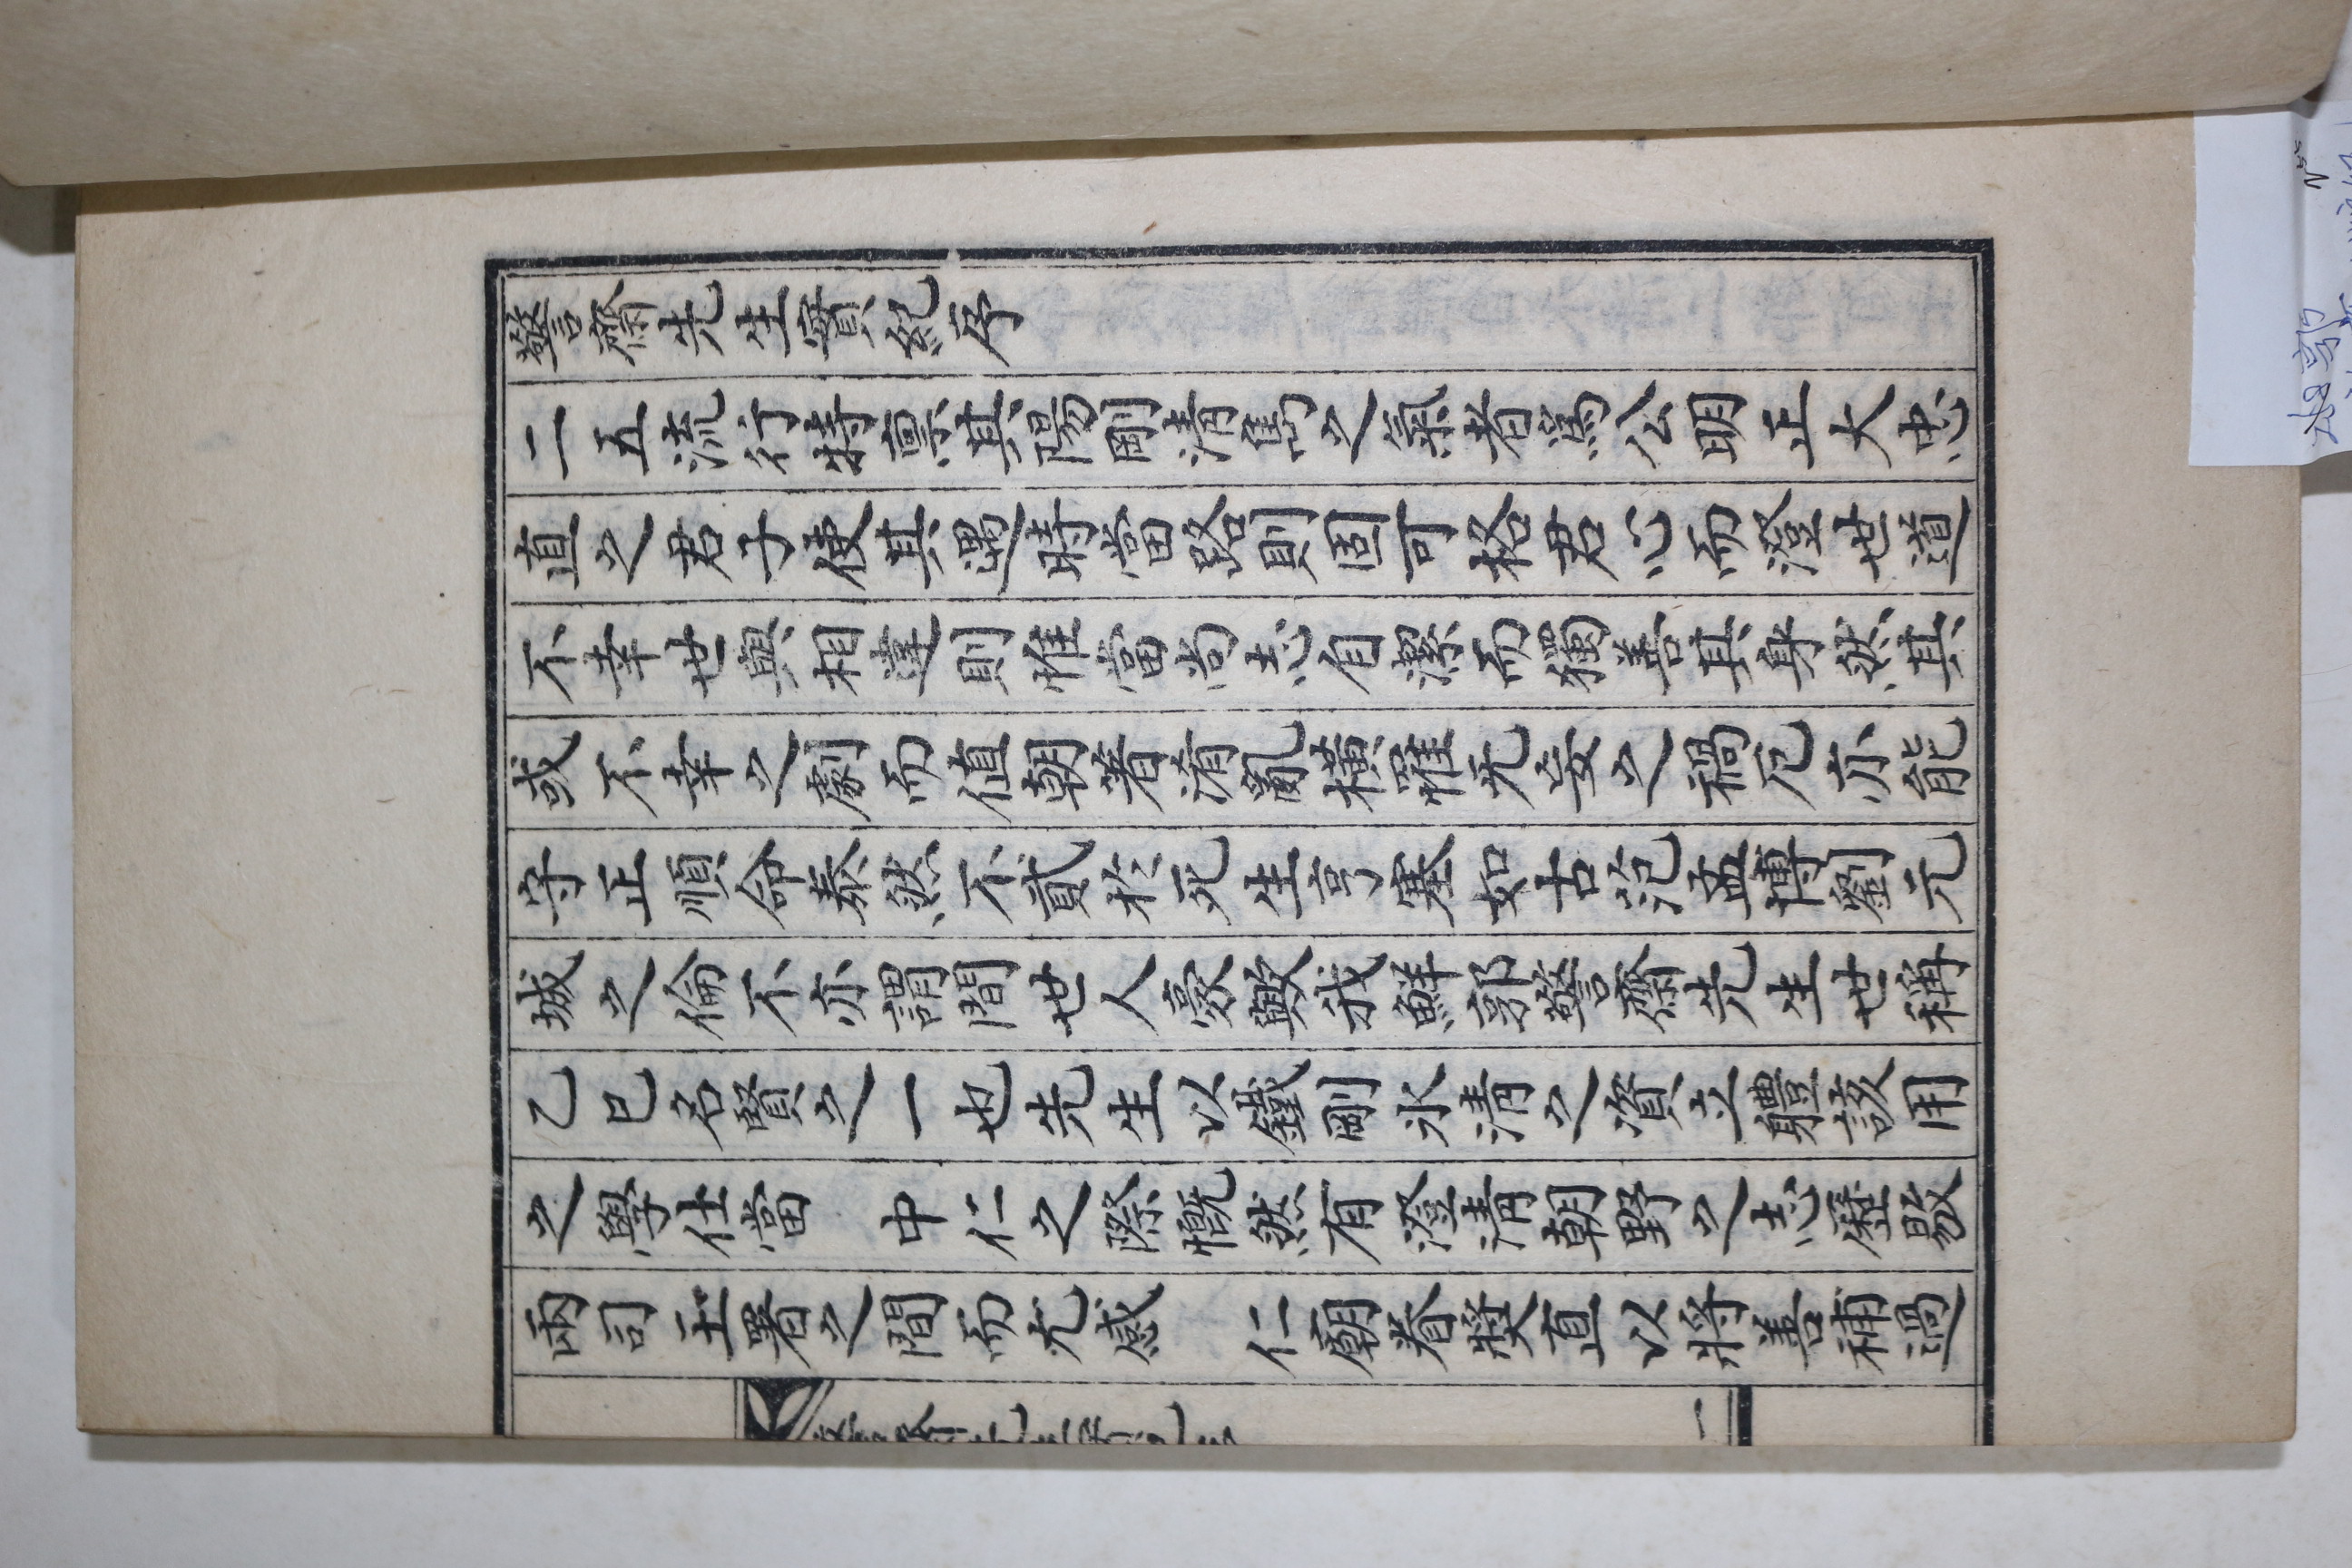 警齋先生實紀序
二五流行特稟其陽剛清雋之氣者爲公明正大忠
直之君子使其遇時當路則固可格君心而澄世道
不幸世與相違則惟當尙志自潔而獨善其身然其
或不幸之劇而値朝著淆亂橫罹无妄之禍厄亦能
守正順命泰然不貳於死生亨塞如古范孟博劉元
城之倫不亦謂間世人豪歟我鮮郭警齋先生世稱
乙巳名賢之一也先生以鐵剛氷清之資立體該用
之學仕當 中仁之際慨然有澄清朝野之志歷敭
兩司玉署之間而尤感 仁廟眷奬直以將善補過
一